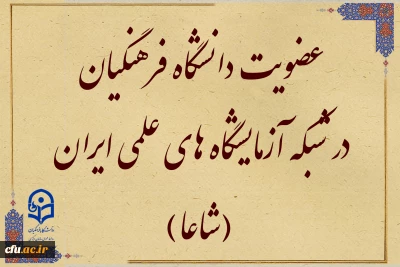 عضویت دانشگاه فرهنگیان
در شبکه آزمایشگاه های علمی ایران
(شاعا)
cfu.ac.ir